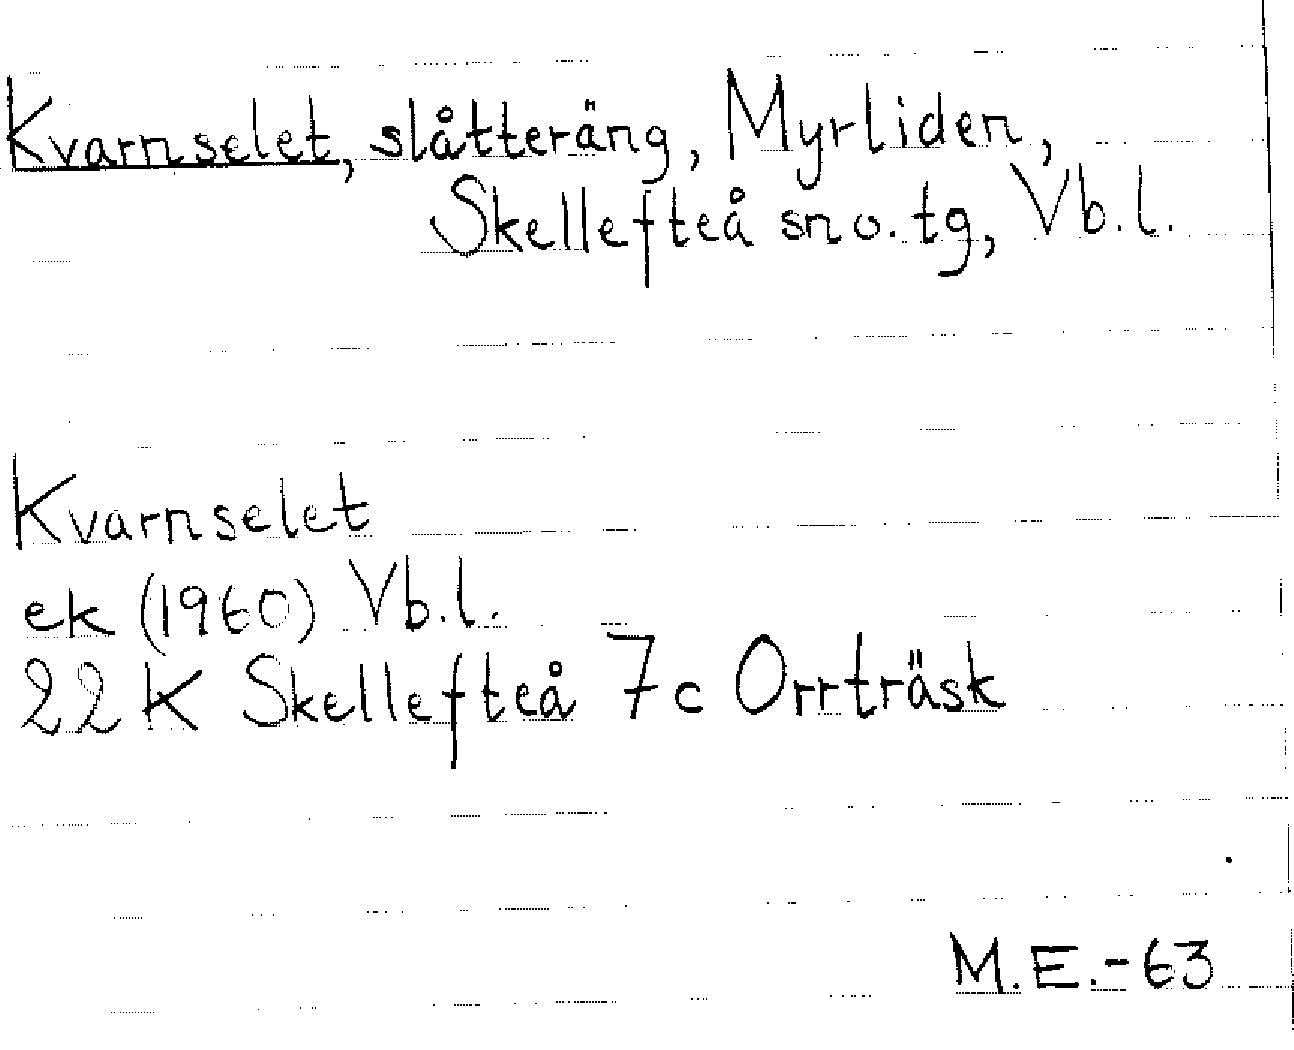 Kvarnselet, slåtteräng, Myrliden,
Skellefteå sn o. tg, Vb.l.
Kvarnselet
ek (1960) Vb.l.
22 K Skellefteå 7c Orrträsk
M.E.-63